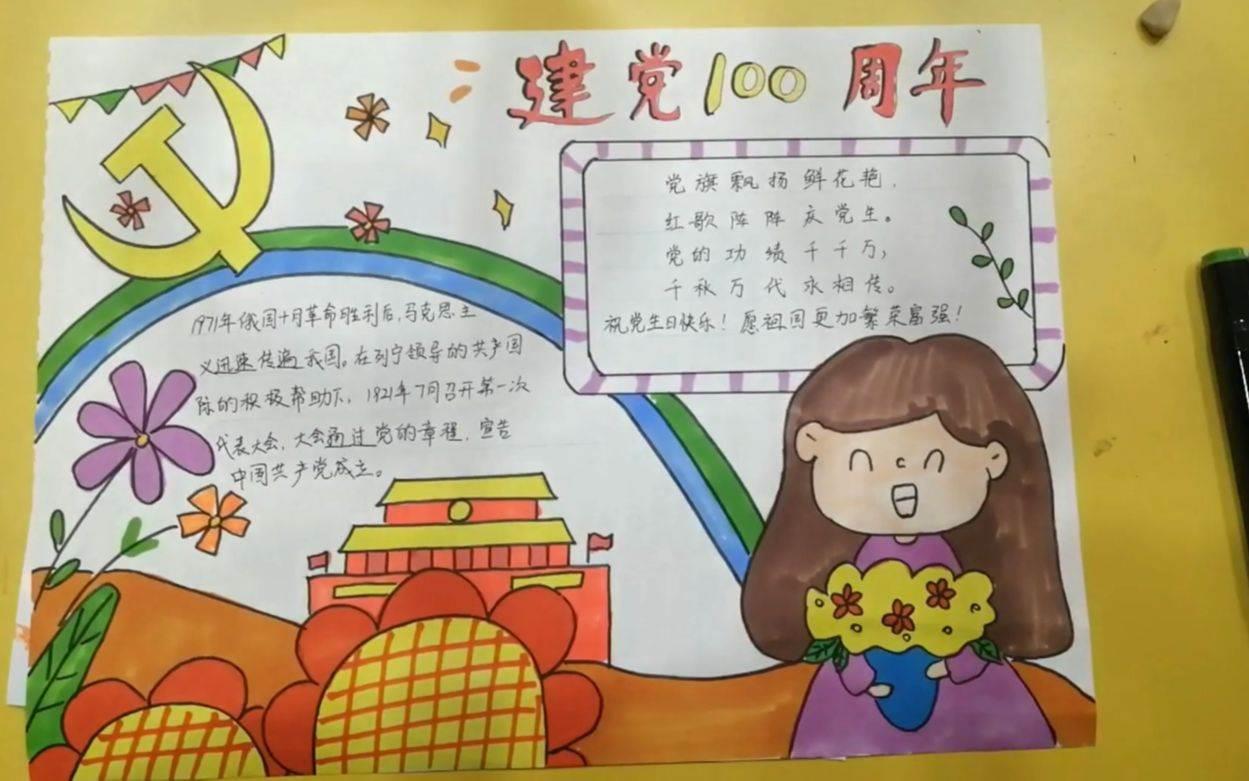 建党100周年
党旗飘扬鲜花艳，
红歌阵阵庆党生。
党的功绩千千万，
千秋万代永相传。
祝党生日快乐！愿祖国更加繁荣富强！
1971年俄国十月革命胜利后，马克思主
义迅速传遍我国。在列宁领导的共产国
际的积极帮助下，1821年7月召开第一次
代表大会，大会通过党的章程，宣告
中国共产党成立。